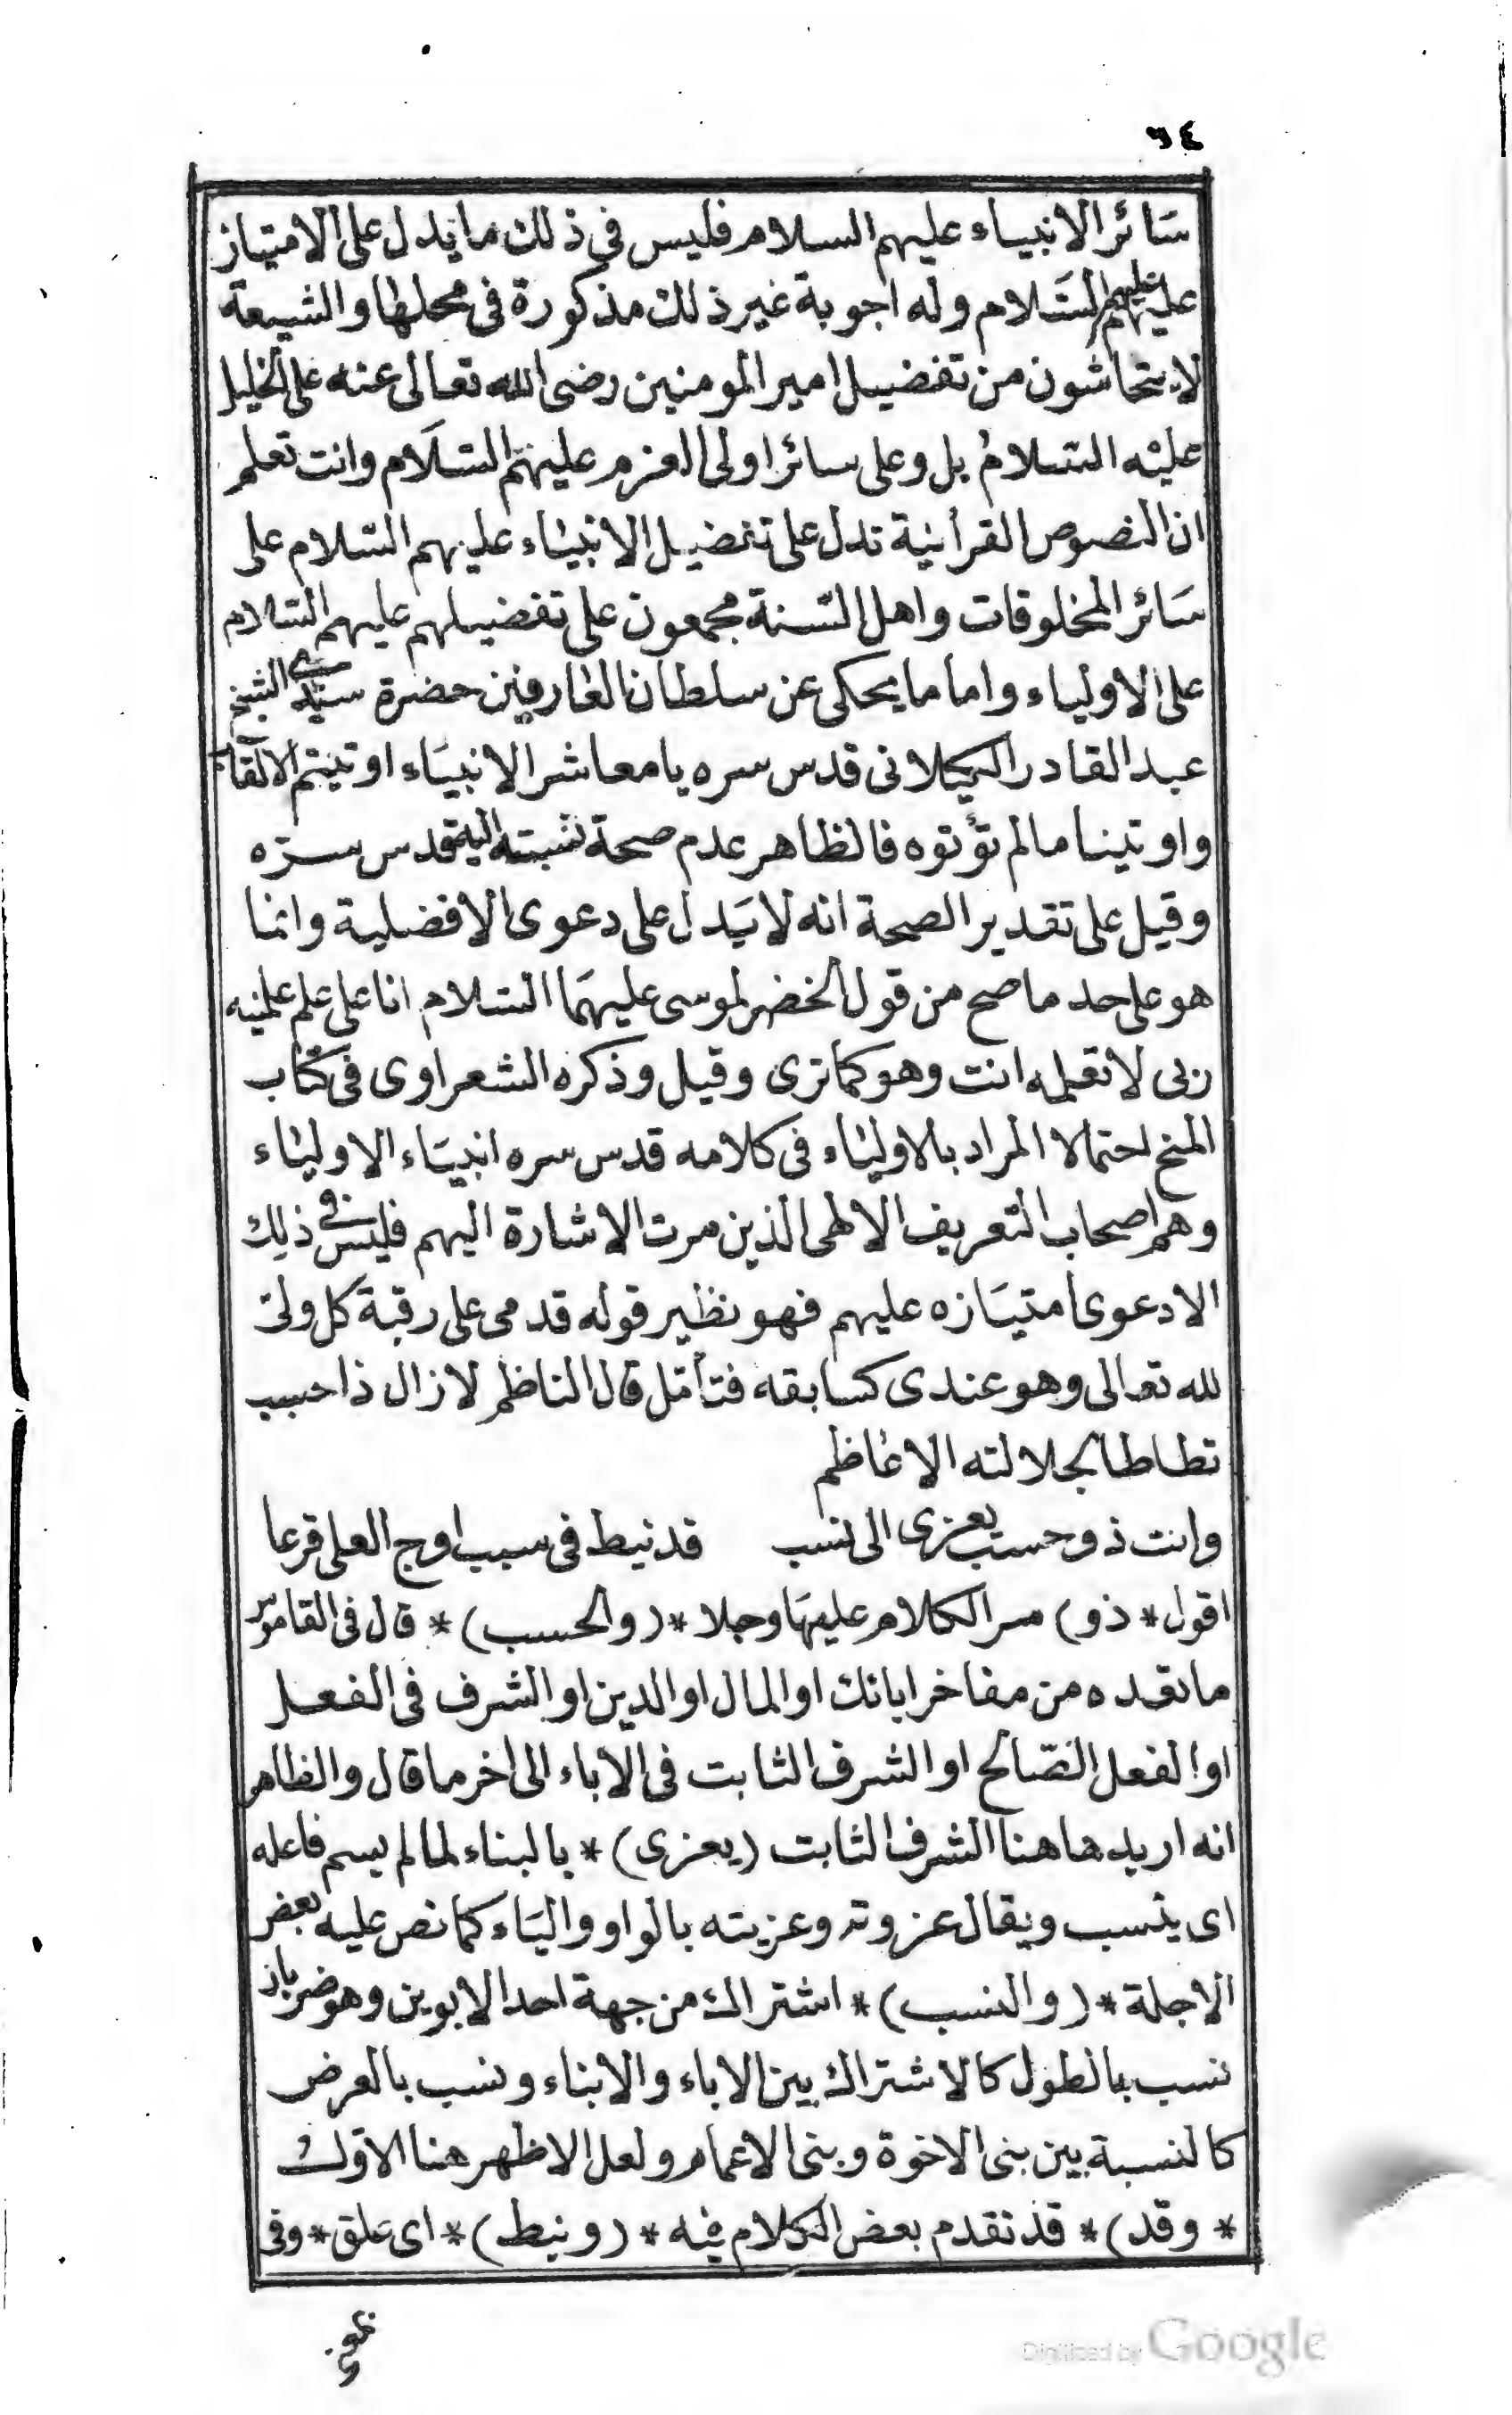 ٦٤
سائر الانبياء عليهم السلام فليس فى ذلك ما يدل على الامتياز
عليهم عليهم السلام وله اجوبة غير ذلك مذكورة فى محلها والشيعة
لا يتحاشون من تفضيل امير المومنين رضى الله تعالى عنه على الخليل
عليه السلام بل وعلى سائر اولى العزم عليهم السلام وانت تعلم
ان النصوص القرأنية تدل على تفضيل الانبياء عليهم السلام على
سائر المخلوقات واهل السنة مجمعون على تفضيلهم عليهم السلام
على الاولياء واما ما يحكى عن سلطان العارفين حضرة سيدى الشيخ
عبد القادر الكيلانى قدس سره يا معاشر الانبياء اوتيتم الالقاب
واوتينا ما لم تؤتوه فالظاهر عدم صحة نسبته اليه قدس سره
وقيل على تقدير الصحة انه لا يدل على دعوى الافضلية وانما
هو على حد ما صح من قول الخضر لموسى عليهما السلام انا على علم علمنيه
ربى لا تعلمه انت وهو كما ترى وقيل وذكره الشعراوى فى كتاب
المنح احتمالا المراد بالاولياء فى كلامه قدس سره انبياء الاولياء
وهم اصحاب التعريف الالهى الذين مرت الاشارة اليهم فليس فى ذلك
الا دعوى امتيازه عليهم فهو نظير قوله قدمى على رقبة كل ولى
لله تعالى وهو عندى كسابقه فتأمل قال الناظم لا زال ذا حسب
تطاطا لجلالته الاعاظم
وانت ذو حسب يعزى الى نسب قد نيط فى سبب اوج العلى قرعا
اقول * ذو) مر الكلام عليها وجلا * (والحسب) * قال فى القاموس
ما تعده من مفاخر ابائك او المال او الدين او الشرف فى الفعل
او الفعل الصالح او الشرف الثابت فى الاباء الى اخر ما قال والظاهر
انه اريد هاهنا الشرف الثابت (يعزى) * بالبناء لما لم يسم فاعله
اى ينسب ويقال عزوته وعزيته بالواو والياء كما نص عليه بعض
الاجلة * (والنسب) * اشتراك من جهة احد الابوين وهو ضربان
نسب بالطول كالاشتراك بين الاباء والابناء ونسب بالعرض
كالنسبة بين بنى الاخوة وبنى الاعمام ولعل الاظهر هنا الاول
* وقد) * قد تقدم بعض الكلام فيه * (ونيط) * اى علق * وفى
Digitized by Google